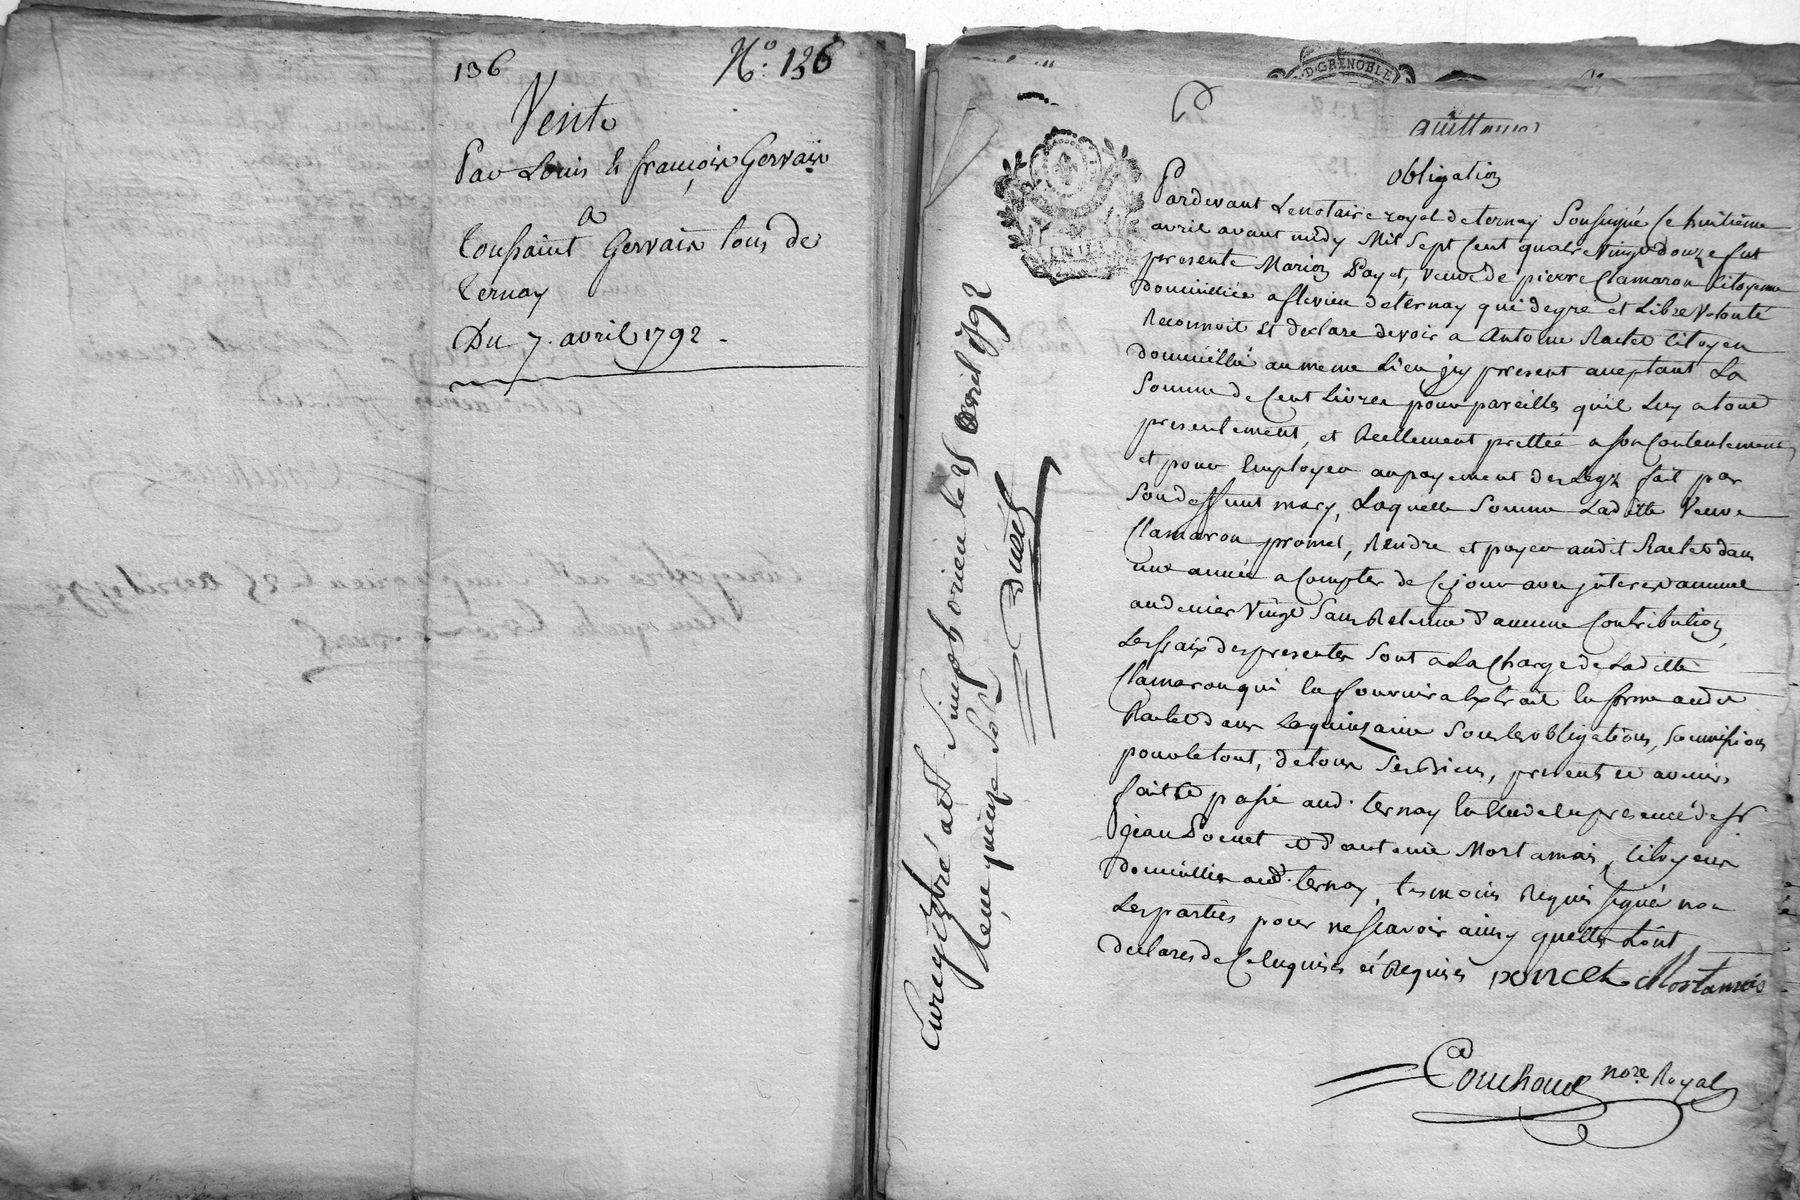 136
N.o 136
Vente
Par Louis & françois Gervais
a
toussaint Gervais tous de
ternay
Du 7. avril 1792.
D. GRENOBLE
quittance
obligation
Pardevant Le notaire royal de ternay Soussigné Ce huitieme
avril avant midy Mil Sept Cent quatre Vingt douze fut
presente Marion Payet, veuve de pierre Clamaron Citoyenne
domicilliée a flevieu de ternay qui de gré et Libre Volonté
Reconnoit et declare devoir a Antoine Raclet Citoyen
domicillié au meme Lieu jcy present acceptant La
Somme de Cent Livres pour pareille qu'il Luy a tout
presentement, et Reellement prettée a son Contentement
et pour Employer au payement des Legs fait par
Son deffunt mary, Laquelle Somme Laditte Veuve
Clamaron promet, Rendre et payer audit Raclet dans
une année a Compter de Ce jour avec jnterest annuel
au denier Vingt Sans Retenue d'aucune Contribution,
Les fraix des presentes Sont a La Charge de Laditte
Clamaron qui En fournira Extrait En forme audit
Raclet dans La quinzaine Sous les obligations, soumissions
pour le tout, de tous Ses Biens, presents et avenirs
fait et passé aud. ternay En Etude En presence de Sr
jean Poncet et d'antoine Mortamais, Citoyens
domicilliés aud. ternay, temoins Requis signé non
Les parties pour ne scavoir ainsy quelles L'ont
declarés de Ce Enquises et Requises poncet Mortamais
Couchoud nore Royal
Enregistré a St Simphorien le 25 avril 1792
Reçu quinze sols